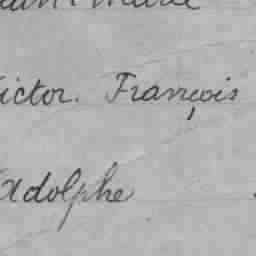 ictor. François
Adolphe